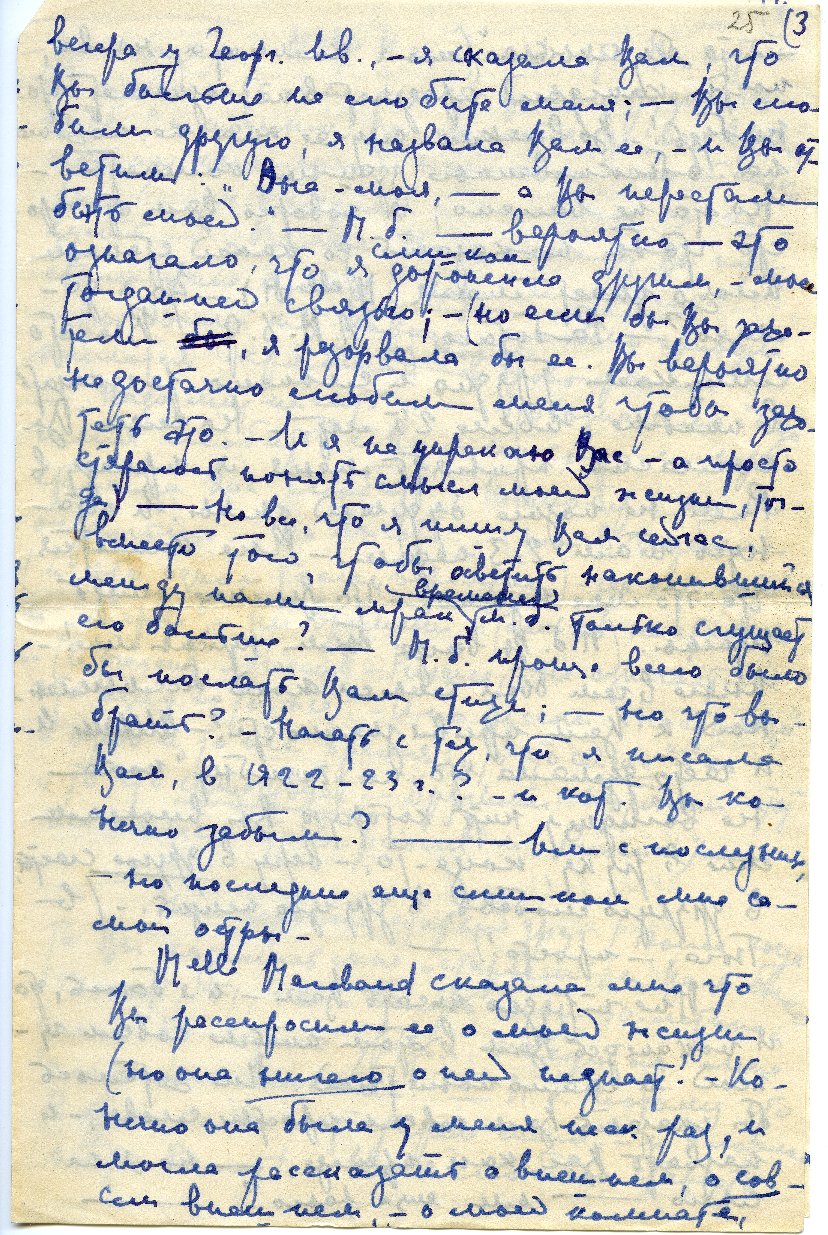 25 (3
вечера у Георг. Ив., – я сказала Вам, что
Вы больше не любите меня; – Вы лю-
били другую, я назвала Вам ее, – и Вы от-
ветили: "Она – моя, — а Вы перестали
быть моей." — М.б. — вероятно — это
слишком
означало, что я дорожила другим, – моей
тогдашней связью; – (но если бы Вы захо-
тели бы, я разорвала бы ее. Вы вероятно
недостаточно любили меня чтобы захо-
теть это. – И я не упрекаю Вас – а просто
стараюсь понять смысл моей жизни, то-
гда) — Но все, что я пишу Вам сейчас,
вместо того, чтобы осветить накопившийся
временем
между нами мрак м.б. только сгущает
его больше? — М.б. проще всего было
бы послать Вам стихи; — но что вы-
брать? – Начать с тех, что я писала
Вам, в 1922–23 г.? – и кот. Вы ко-
нечно забыли? — Или с последних,
– но последние еще слишком мне са-
мой остры –
Melle Marchand сказала мне что
Вы расспросили ее о моей жизни
(но она ничего о ней не знает! – Ко-
нечно она была у меня неск. раз, и
могла рассказать о внешнем, о сов-
сем внешнем, – о моей комнате,